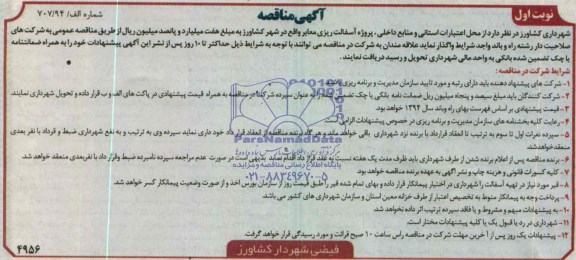 نوبت اول
آگهی مناقصه
شماره الف/ ۷۰۷/۹۴
شهرداری کشاورز در نظر دارد از محل اعتبارات استانی و منابع داخلی ، پروژه آسفالت ریزی معابر واقع در شهر کشاورز به مبلغ هفت میلیارد و پانصد میلیون ریال از طریق مناقصه عمومی به شرکت های
صلاحیت دار رشته راه و باند واجد شرایط واگذار نماید علاقه مندان به شرکت در مناقصه می توانند با توجه به شرایط ذیل حداکثر تا ۱۰ روز پس از نشر این آگهی پیشنهادات خود را به همراه ضمانتنامه
یا چک تضمین شده بانکی به واحد مالی شهرداری تحویل و رسید دریافت نمایند.
شرایط شرکت در مناقصه :
۱- شرکت های پیشنهاد دهنده باید دارای رتبه و مورد تایید سازمان مدیریت و برنامه ریزی
۲- شرکت کنندگان باید مبلغ سیصد و پنجاه میلیون ریال ضمانت نامه بانکی یا چک تضمین به عنوان سپرده شرکت در مناقصه به همراه قیمت پیشنهادی در پاکت های الف و ب قرار داده و تحویل شهرداری نمایند.
۳- قیمت پیشنهادی بر اساس فهرست بهای راه وباند سال ۱۳۹۴ خواهد بود.
۴- رعایت کلیه بخشنامه های سازمان مدیریت و برنامه ریزی در خصوص پیشنهادات الزامی
۵- سپرده نفرات اول تا سوم به ترتیب تا انعقاد قرارداد با برنده نزد شهرداری باقی خواهد ماند و هرگاه برنده مناقصه از انعقاد قرار داد خود داری نماید سپرده وی به ترتیب و به نفع شهرداری ضبط و قرداد با نفر بعدی
منعقد خواهد شد.
۶- برنده مناقصه پس از اعلام برنده شدن از طرف شهرداری باید ظرف مدت یک هفته نسبت به عقد قرار داد اقدام نماید بدیهی است در صورت عدم مراجعه سپرده نامبرده ضبط وقرار داد با نفربعدی منعقد خواهد شد.
۷- کلیه کسورات قانونی و هزینه چاپ و نشر آگهی به عهده برنده مناقصه خواهد بود.
۸- قیر مورد نیاز در تهیه آسفالت را شهرداری در اختیار پیمانکار قرار داده و بهای تمام شده قیر را طبق قیمت روز از سازمان بورس اخذ و از صورت وضعیت پیمانکار کسر خواهد شد.
۹- پرداخت وجه به پیمانکار منوط به تخصیص اعتبار از طرف خزانه معین استان و سازمان شهرداری های کشور می باشد.
۱۰- به پیشنهادات مبهم و مشروط و یا فاقد سپرده ترتیب اثر داده نخواهد شد.
۱۱- شهرداری در رد یا قبول یک یا کلیه پیشنهادات مختار است.
۱۲- پیشنهادات یک روز پس از آخرین مهلت شرکت در مناقصه راس ساعت ۱۰ صبح قرائت و مورد رسیدگی قرار خواهد گرفت.
فیضی شهردار کشاورز
۴۹۵۶
ParsNamadData
۰۲۱-۸۸۳۴۹۶۷۰-۵